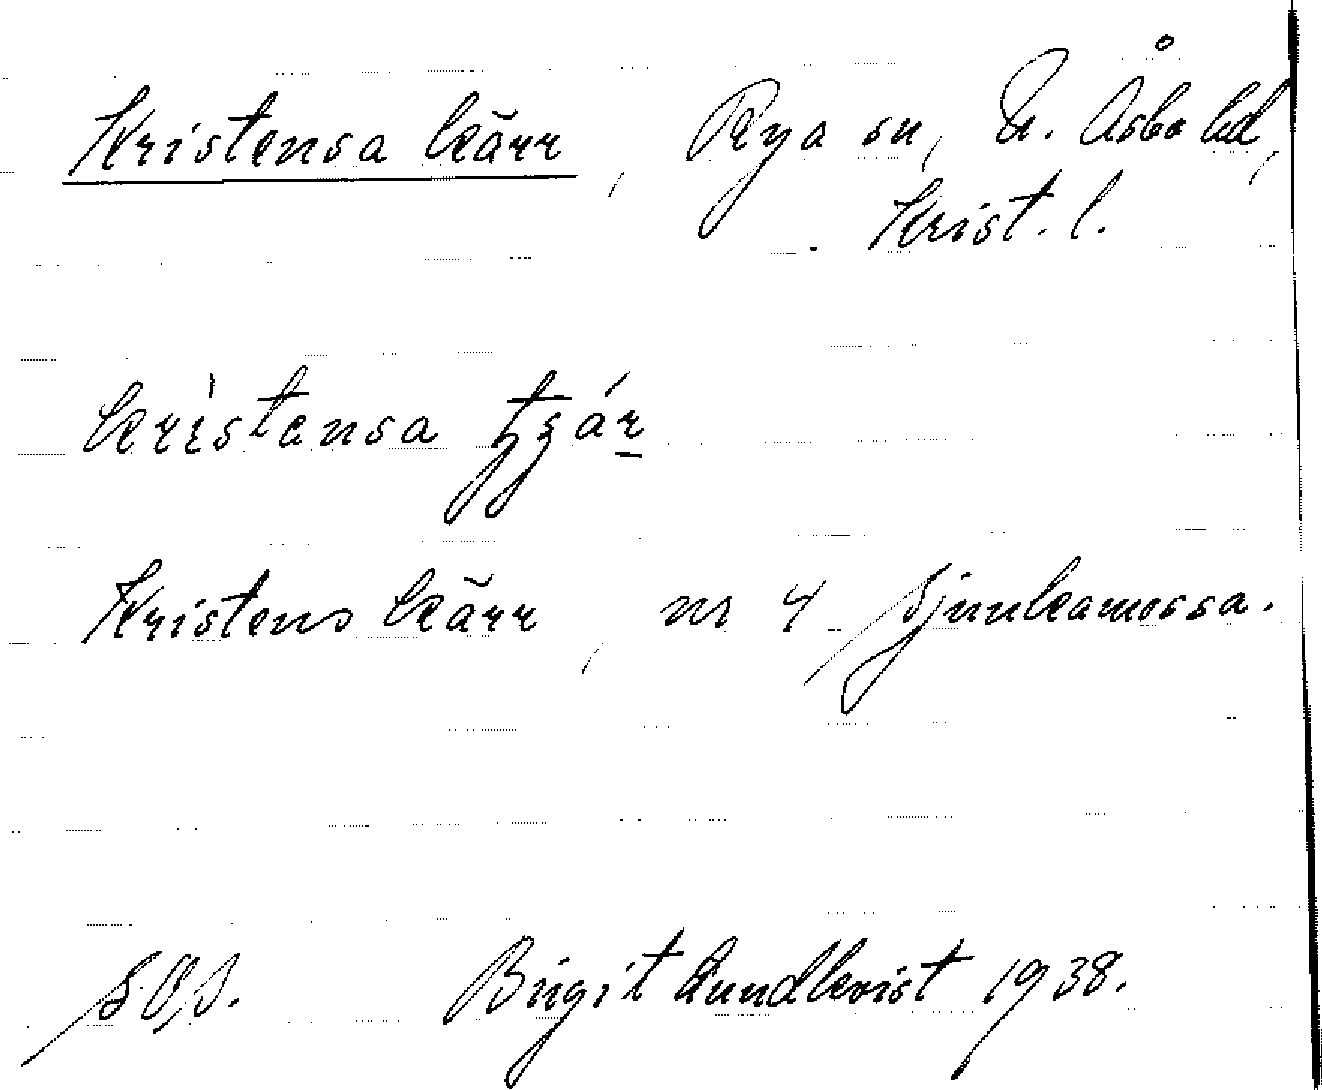 Kristensa kärr, Rya sn, N. Åsbo hd,
Krist. l.
krìstensa tʒár
Kristens kärr, nr 4 Sjunkamossa.
Birgit Lundkvist 1938.